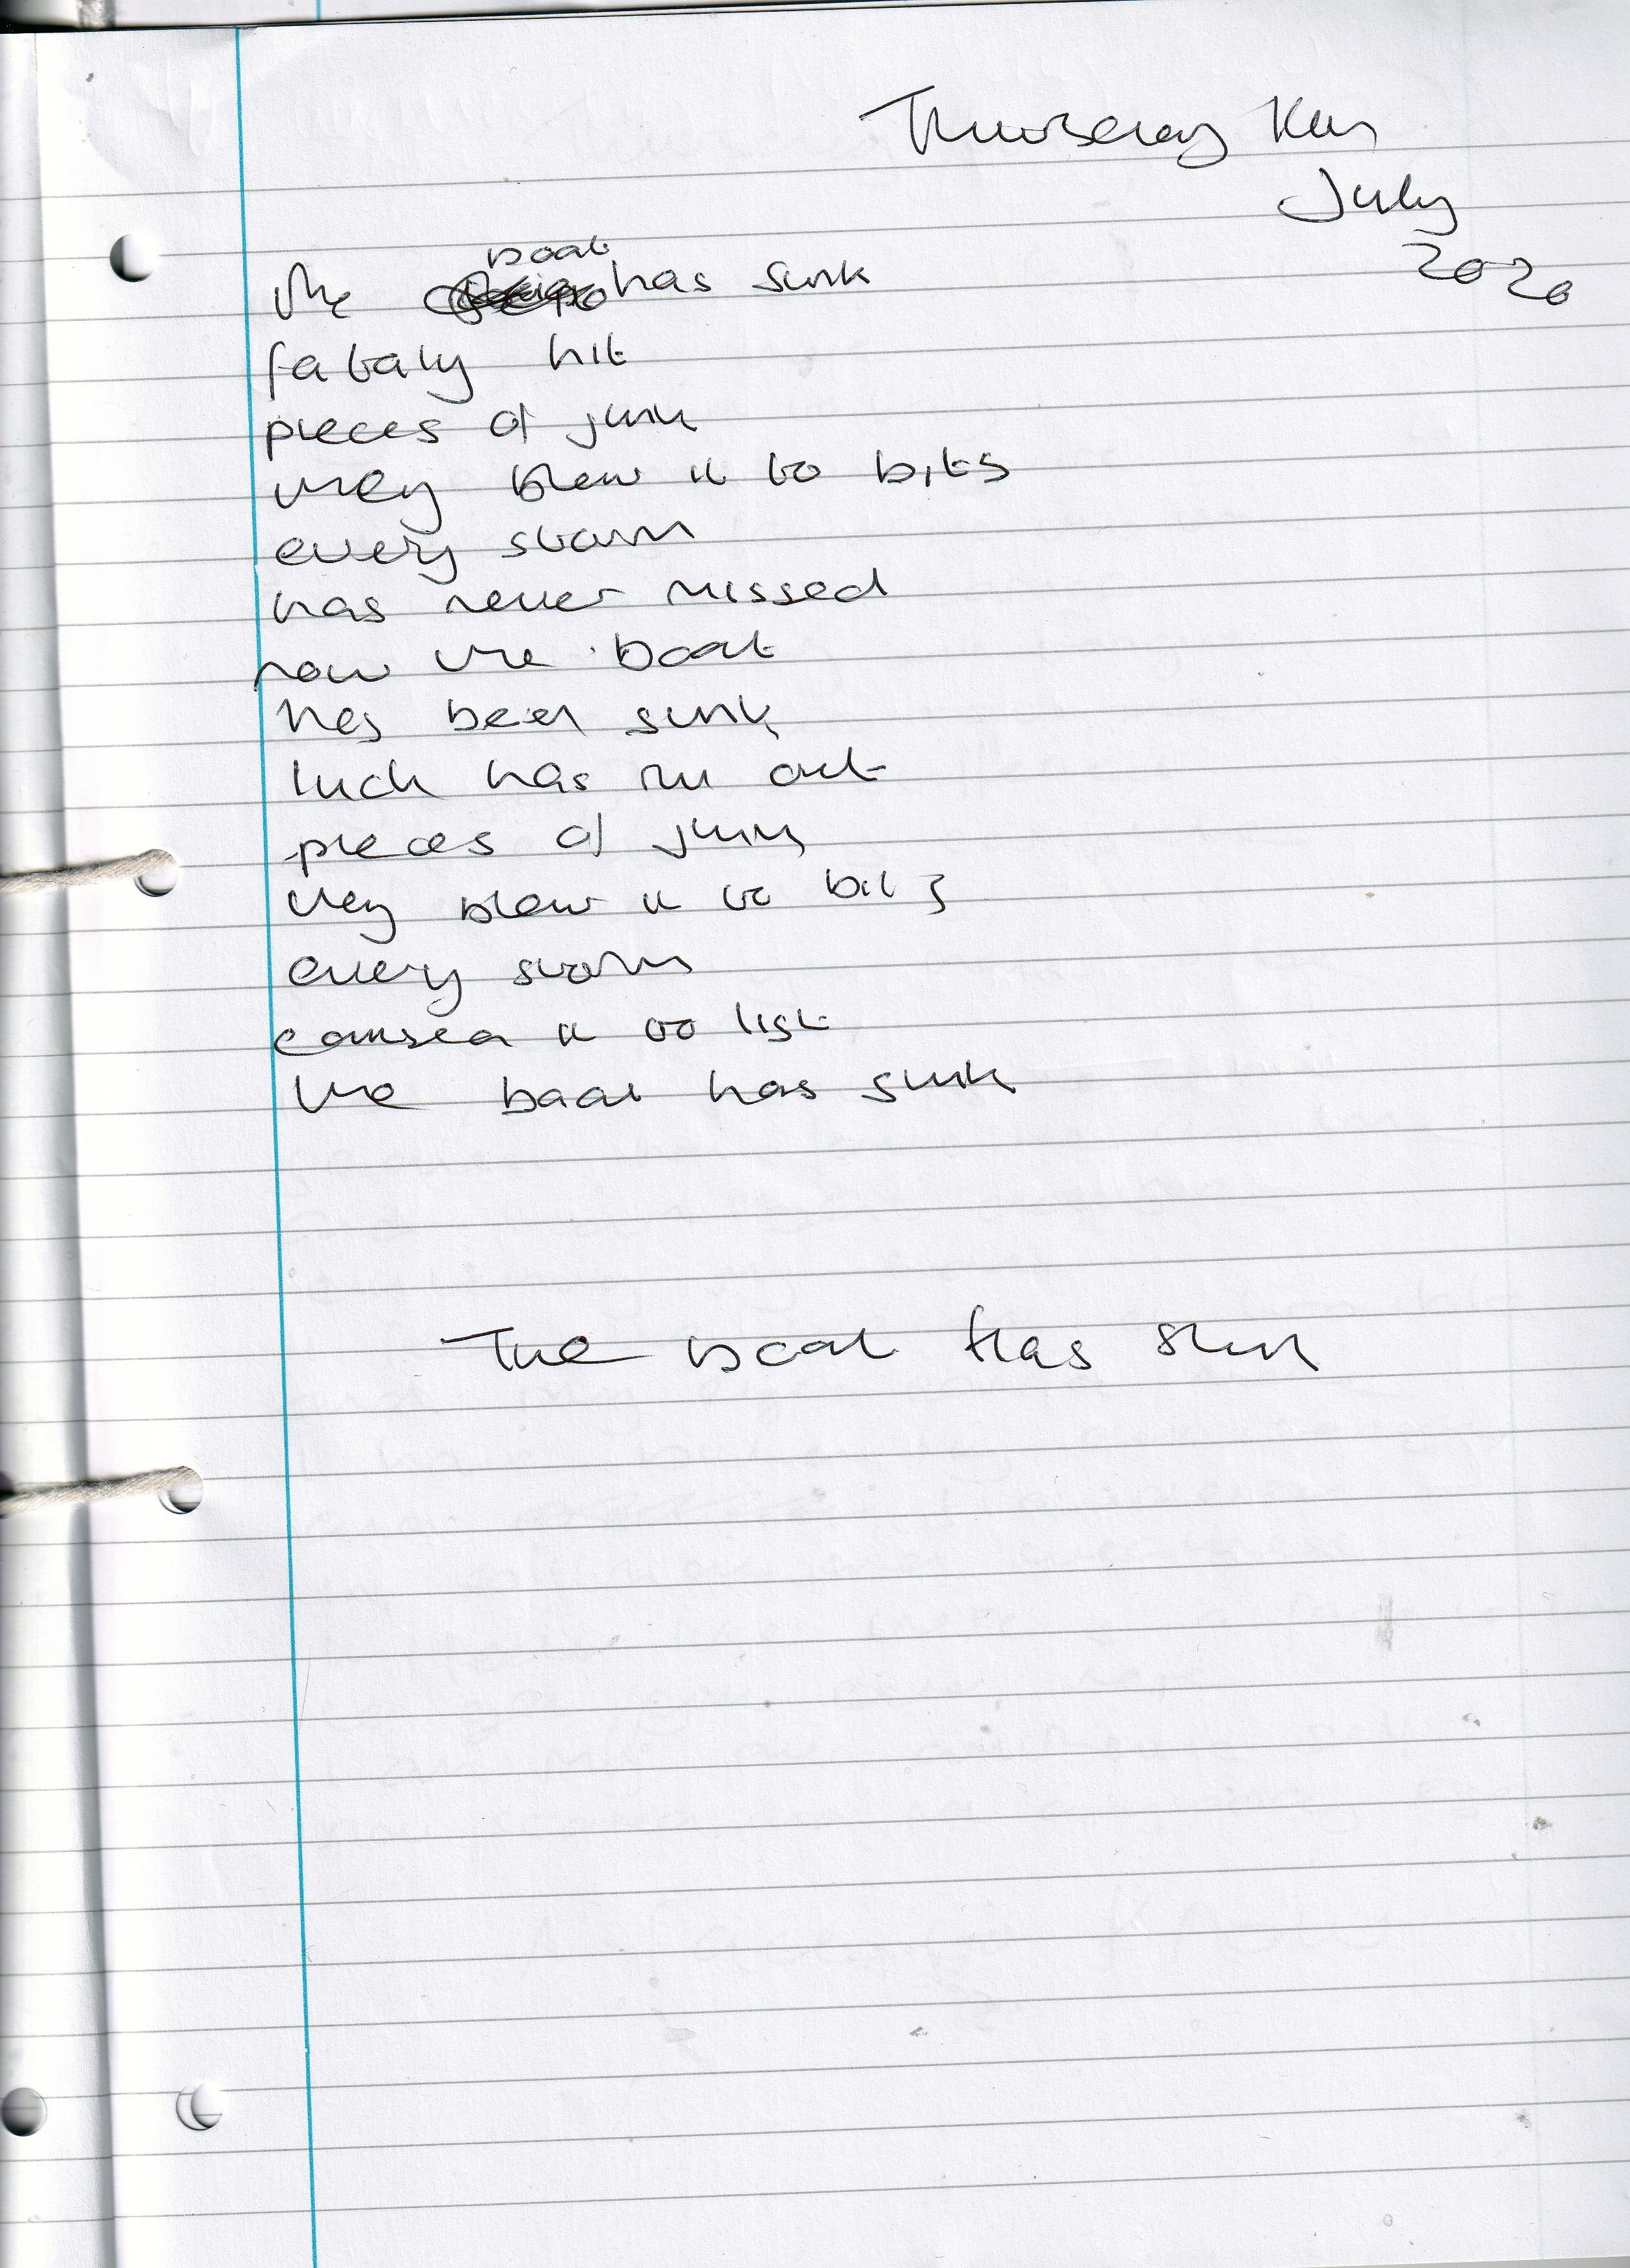 Thursday
July
2020
boat
the has sunk
fataly hit
pieces of junk
they blew it to bits
every storm
has never missed
now the boat
has been sunk
luck has run out
pieces of junk
they blew it to bits
every storm
caused it to list
the boat has sunk
The boat Has sunk